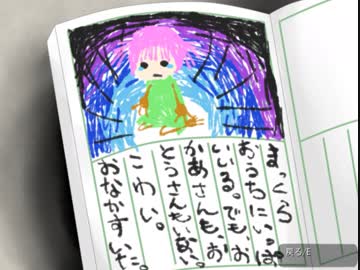 まっくら
おうちにいっぱ
いいる。でも、お
かあさんも、お
とうさんもいない。
こわい。
おなかすいた。
戻る/E